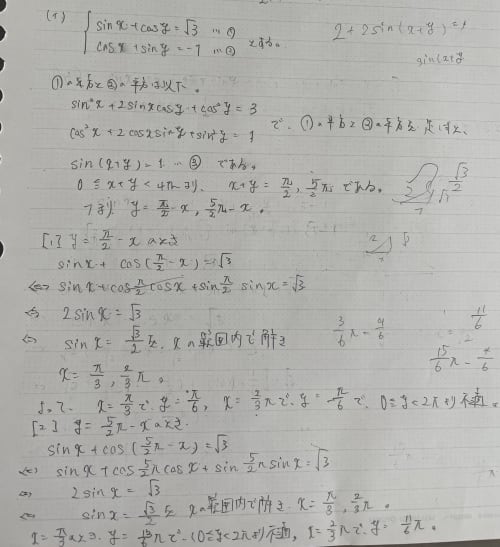 (1) { sinx + cosy = √3 … ①
cosx + siny = -1 … ② とする。
2+2sin(x+y)=4
sin(x+y
①の平方と②の平方は以下。
sin²x + 2sinxcosy + cos²y = 3
cos²x + 2cosxsiny + sin²y = 1
で、①の平方と②の平方を足すと、
sin(x+y) = 1 … ③ である。
0 ≦ x+y < 4πより、 x+y = π/2, 5/2π である。
つまり y = π/2 - x, 5/2π - x 。
[1] y = π/2 - x のとき
sinx + cos(π/2 - x) = √3
⇔ sinx + cos π/2 cosx + sin π/2 sinx = √3
⇔ 2sinx = √3
⇔ sinx = √3/2 を、xの範囲内で解き
x = π/3, 2/3π 。
よって x = π/3 で y = π/6, x = 2/3π で y = -π/6 で、0≦y<2πより不適。
3/6π - 4/6
11/6
15/6π - 4/6
[2] y = 5/2π - x のとき
sinx + cos(5/2π - x) = √3
⇔ sinx + cos 5/2π cosx + sin 5/2π sinx = √3
⇔ 2sinx = √3
⇔ sinx = √3/2 を xの範囲内で解き x = π/3, 2/3π 。
x = π/3 のとき y = 13/6π で (0≦y<2πより)不適, x = 2/3π で y = 11/6π 。